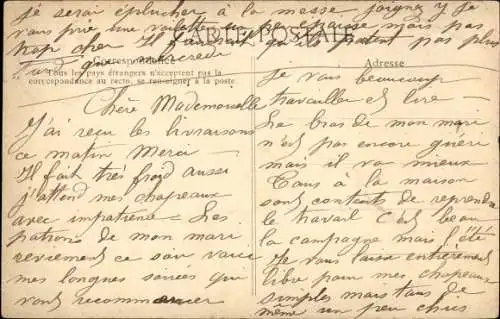 je serai éplucher à la messe joignez y je
vous prie une voilette un peu épaisse mais pas
trop cher Il faudrait qu'ils partent pas plus
tard que mercredi
CARTE POSTALE
Correspondance
Tous les pays étrangers n'acceptent pas la
correspondance au recto, se renseigner à la poste.
Chère Mademoiselle
J'ai reçu les livraisons
ce matin Merci
Il fait très froid aussi
j'attend mes chapeaux
avec impatience = Les
patrons de mon mari
reviennent ce soir voici
mes longues soirées qui
vont recommencer
Adresse
Je vais beaucoup
travailler et lire
Le bras de mon mari
n'est pas encore guéri
mais il va mieux
Tous à la maison
sont contents de reprendre
le travail C'est beau
la campagne mais l'été
Je vous laisse entièrement
libre pour mes chapeaux
simples mais tous de
même un peu chics